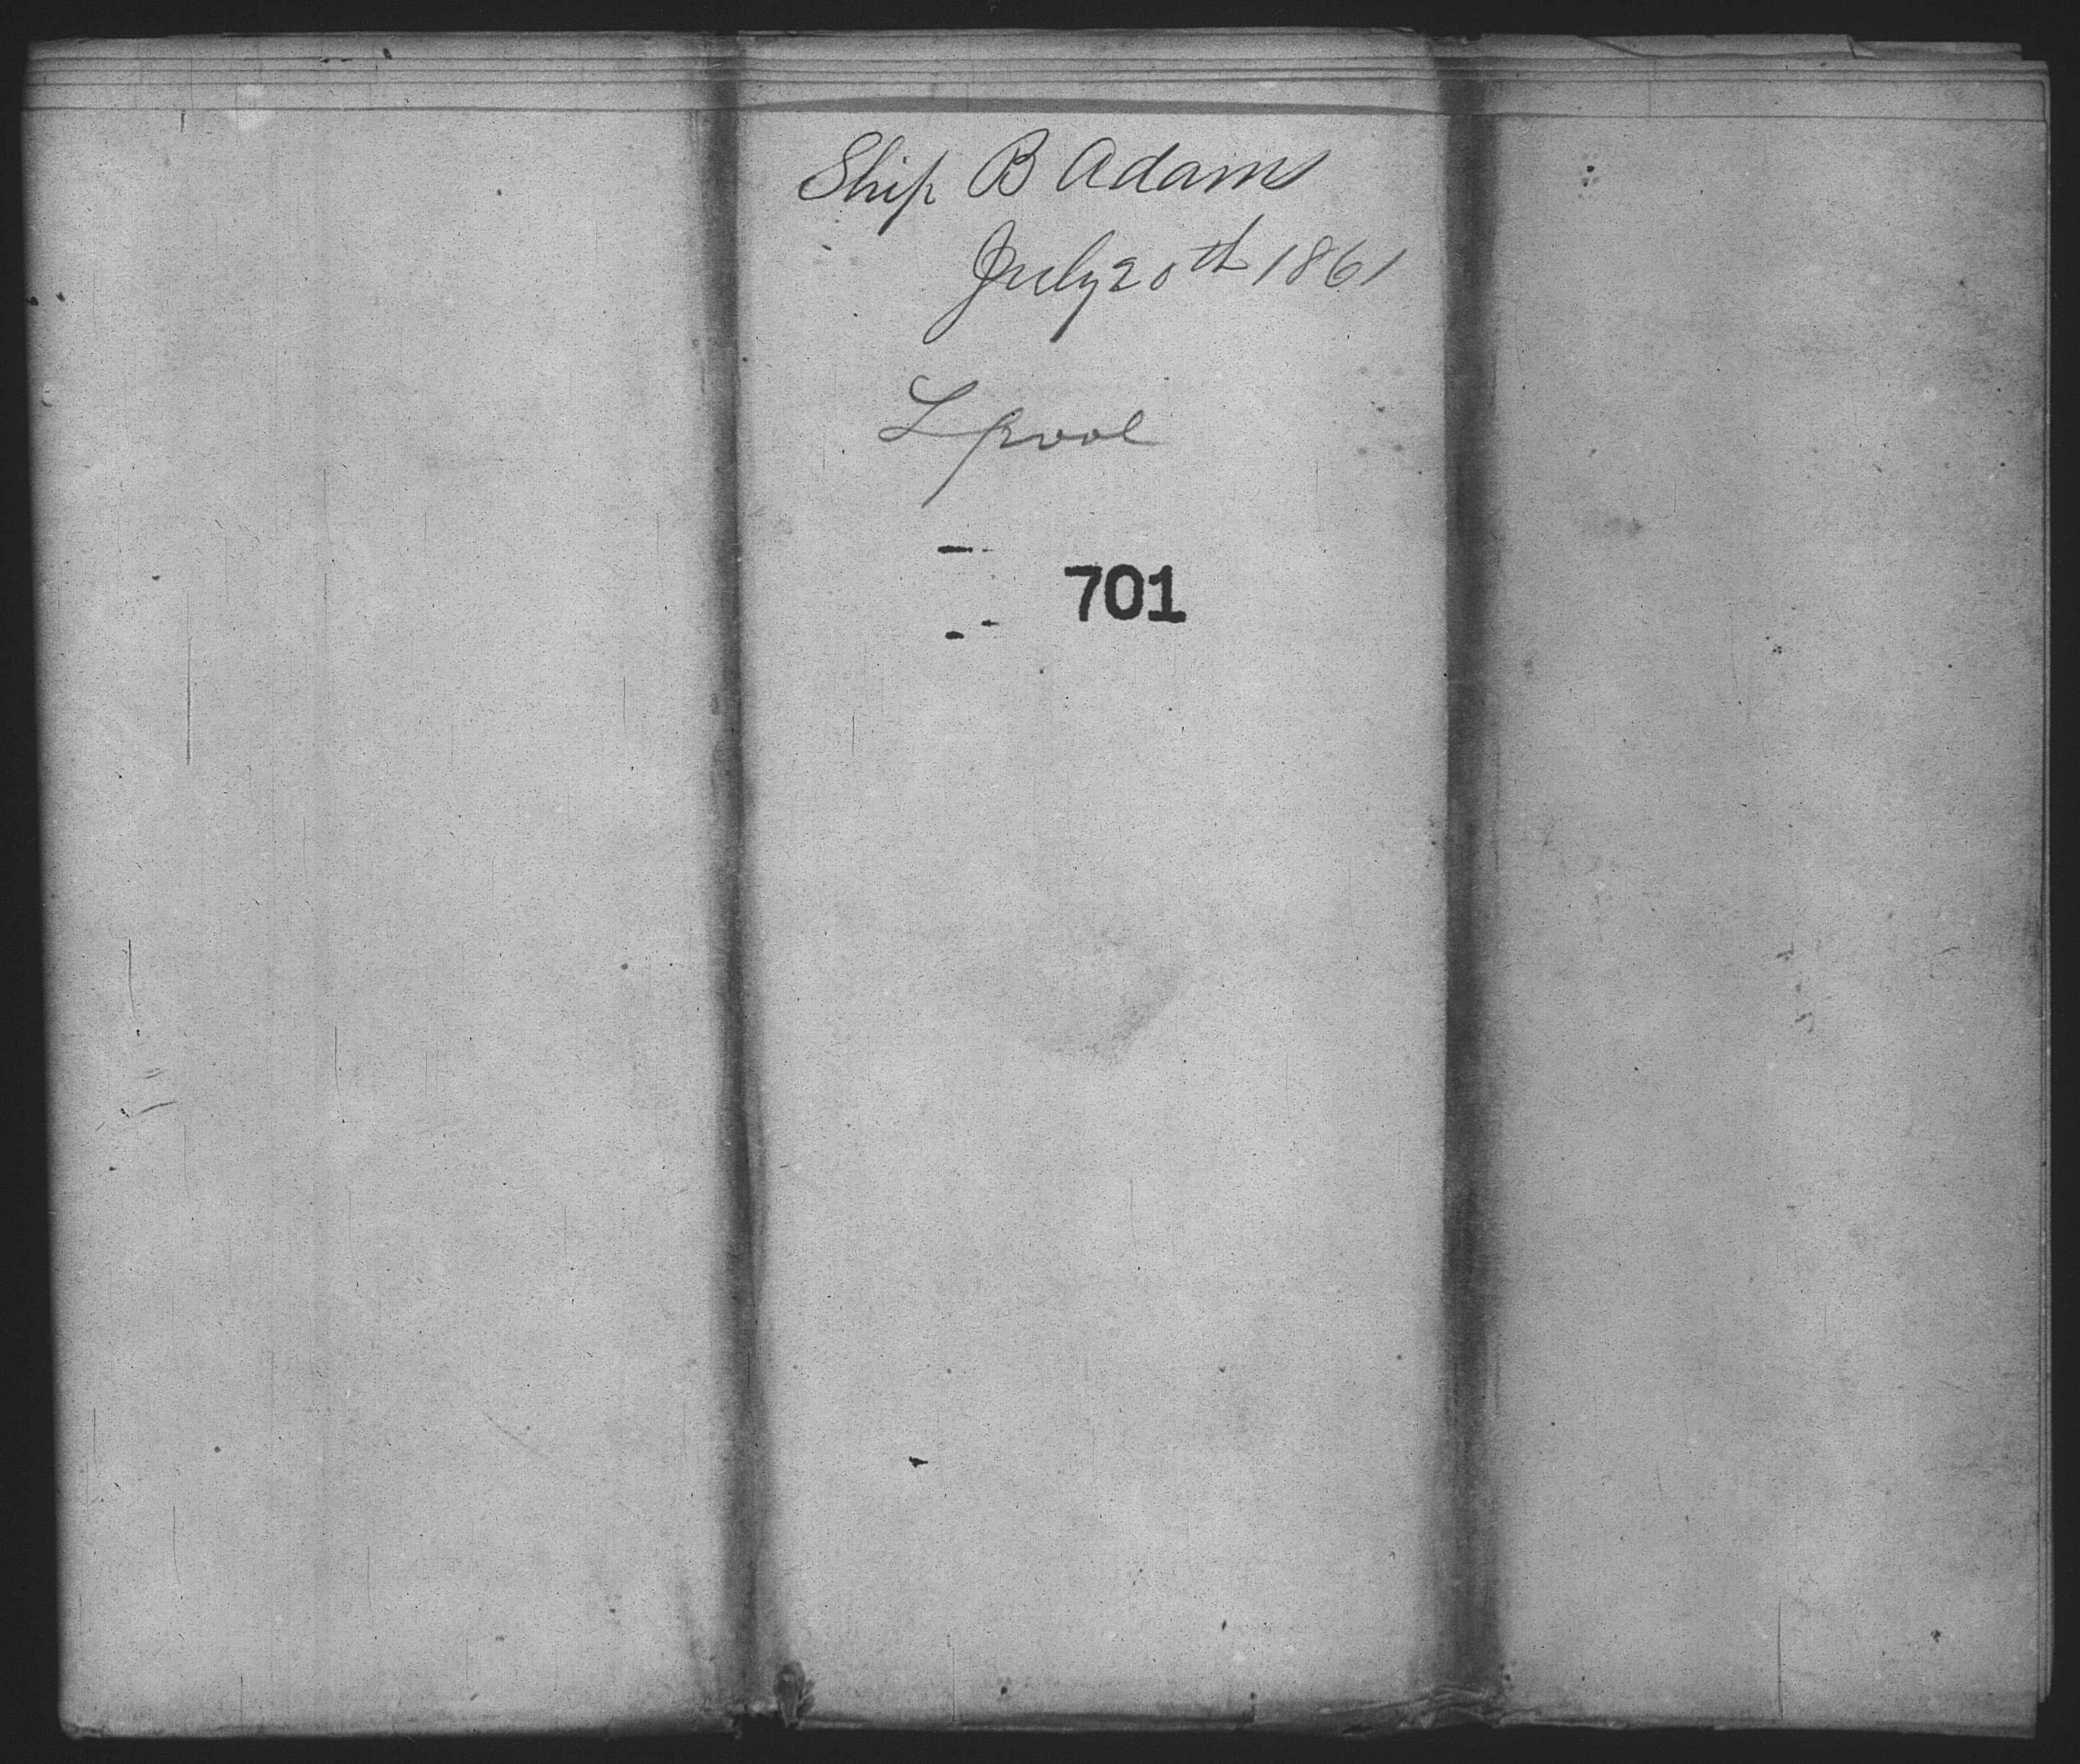 Ship B Adams
July 20th 1861
L pool
701